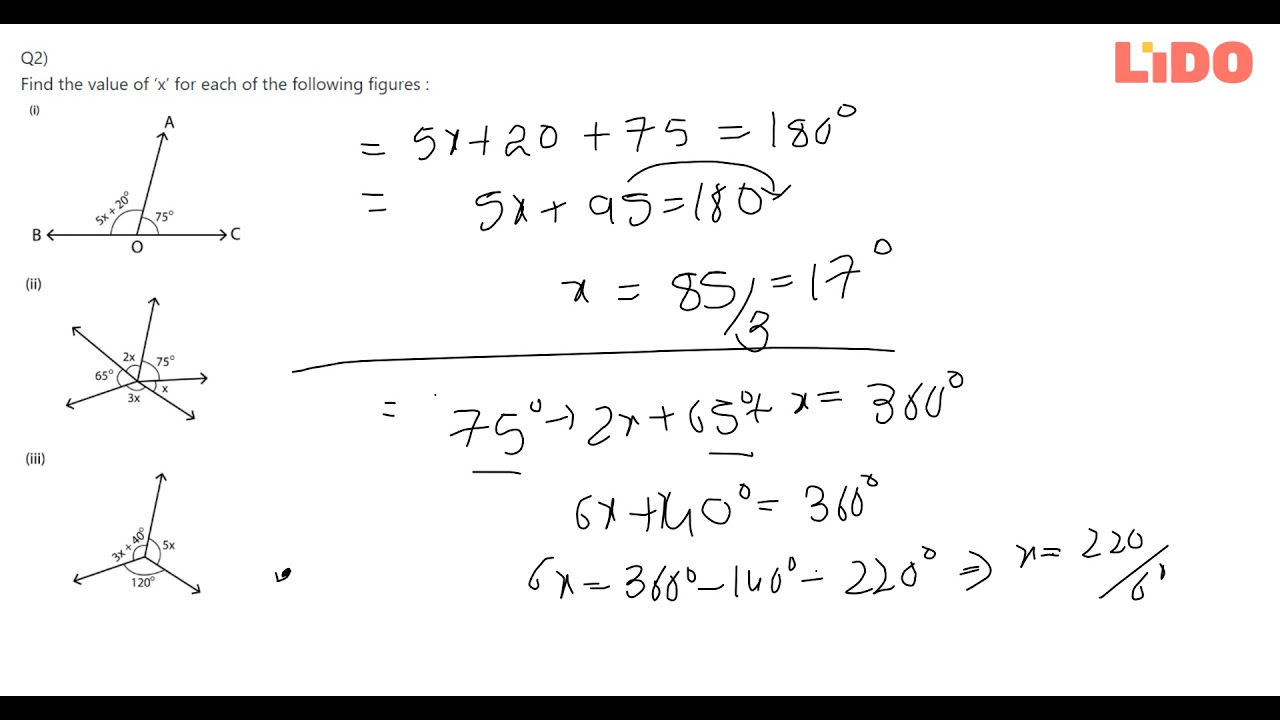 LiDO
Q2)
Find the value of ‘x’ for each of the following figures :
(i)
A
5x + 20°
75°
B
C
O
= 5x+20 + 75 = 180°
= 5x + 95 = 180
x = 85/3 = 17°
(ii)
2x
75°
65°
x
3x
= 75° → 2x + 65° + x = 360°
6x + 140° = 360°
6x = 360° - 140° - 220° ⇒ x = 220/6°
(iii)
3x + 40°
5x
120°